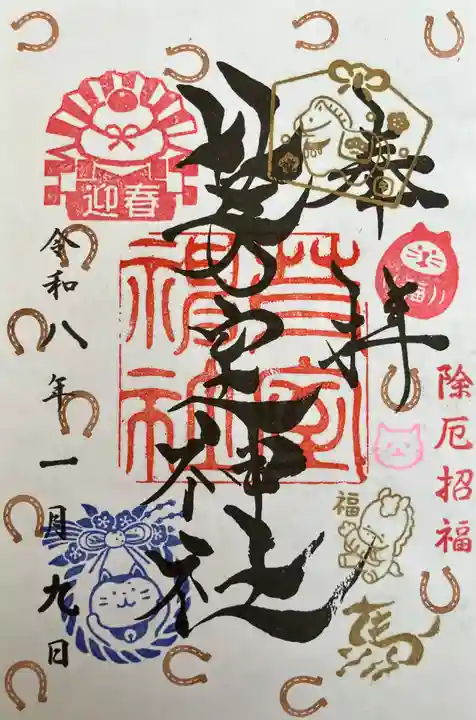 奉拝
除厄招福
福
福
馬
芽室神社
芽室
神社
迎春
令和八年一月九日